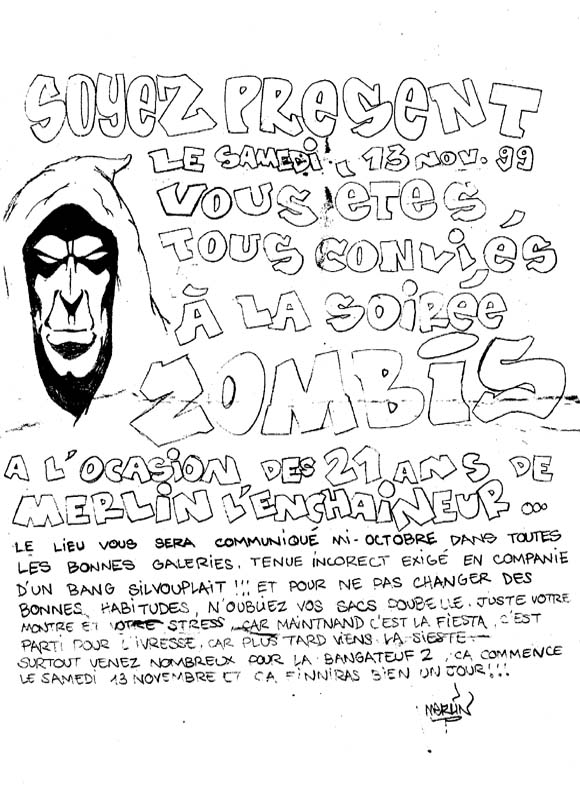 SOYEZ PRESENT
LE SAMEDI, 13 NOV. 99
VOUS ETES
TOUS CONVIÉS
À LA SOIRÉE
ZOMBIS
A L'OCASION DES 21 ANS DE
MERLIN L'ENCHAINEUR...
LE LIEU VOUS SERA COMMUNIQUÉ MI-OCTOBRE DANS TOUTES
LES BONNES GALERIES. TENUE INCORECT EXIGÉ EN COMPANIE
D'UN BANG SILVOUPLAIT !!! ET POUR NE PAS CHANGER DES
BONNES HABITUDES, N'OUBLIEZ VOS SACS POUBELLE. JUSTE VOTRE
MONTRE ET VOTRE STRESS, CAR MAINTNAND C'EST LA FIESTA, C'EST
PARTI POUR L'IVRESSE, CAR PLUS TARD VIENS LA SIESTE.
SURTOUT VENEZ NOMBREUX POUR LA BANGATEUF 2, CA COMMENCE
LE SAMEDI 13 NOVEMBRE ET CA FINNIRAS BIEN UN JOUR!!!
MERLIN